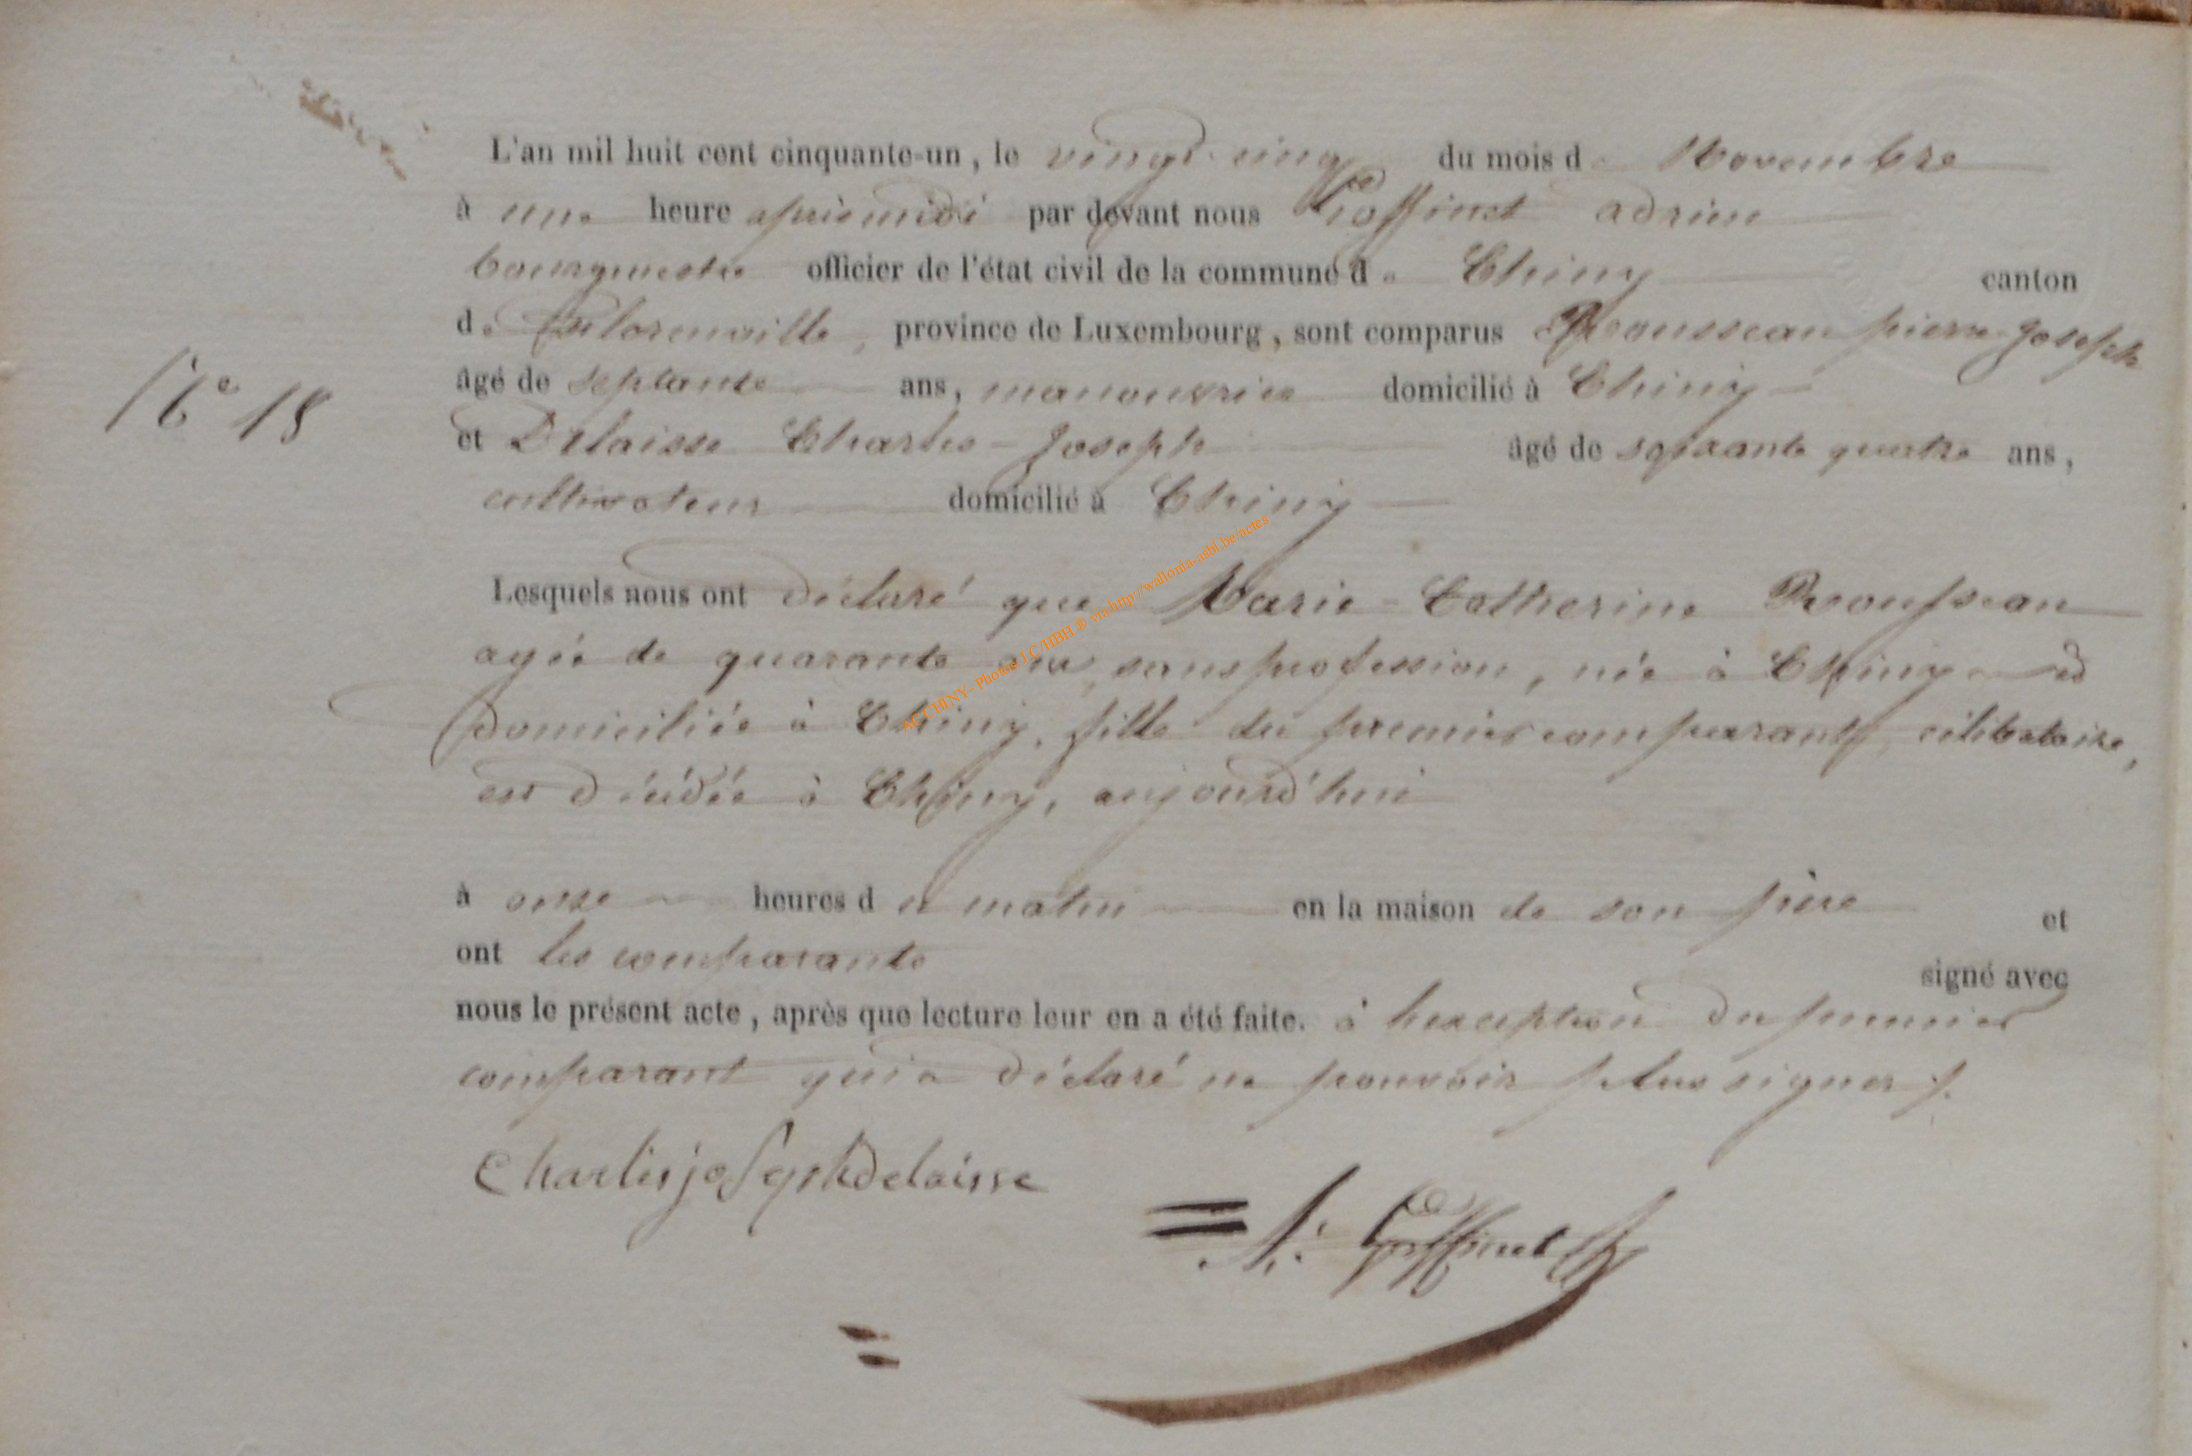 L'an mil huit cent cinquante-un, le vingt-cinq du mois de Novembre
à une heure après midi par devant nous Goffinet adrien
bourgmestre officier de l'état civil de la commune de Chiny canton
de Florenville, province de Luxembourg, sont comparus Rousseau pierre-Joseph
âgé de septante ans, manouvrier domicilié à Chiny
N° 18
et Delaisse Charles-Joseph âgé de soixante quatre ans,
cultivateur domicilié à Chiny
Lesquels nous ont déclaré que Marie-Catherine Rousseau
agée de quarante ans, sans profession, née à Chiny et
domiciliée à Chiny, fille du premier comparant, célibataire,
est décédée à Chiny, aujourd'hui
à onze heures du matin en la maison de son père et
ont les comparants signé avec
nous le présent acte, après que lecture leur en a été faite. à l'exception du premier
comparant qui a déclaré ne pouvoir plus signer /.
Charles joseph delaisse
A: Goffinet
ACCHINY - Photos LC/HBH ® via http://wallonia-asbl.be/actes